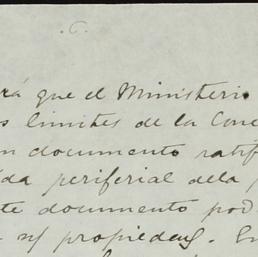 6.
rá que el Ministerio
s limites de la Con
n documento ratif
da periferial dela
te documento pod
s/ propiedad. En